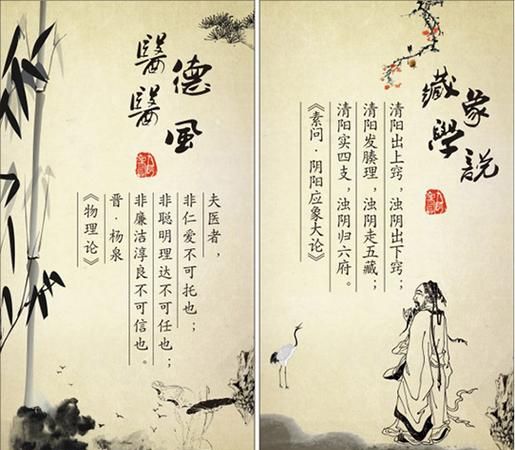 醫德
醫風
夫医者，
非仁爱不可托也；
非聪明理达不可任也；
非廉洁淳良不可信也。
晋·杨泉
《物理论》
藏象
學説
清阳出上窍，浊阴出下窍；
清阳发腠理，浊阴走五藏；
清阳实四支，浊阴归六府。
《素问·阴阳应象大论》